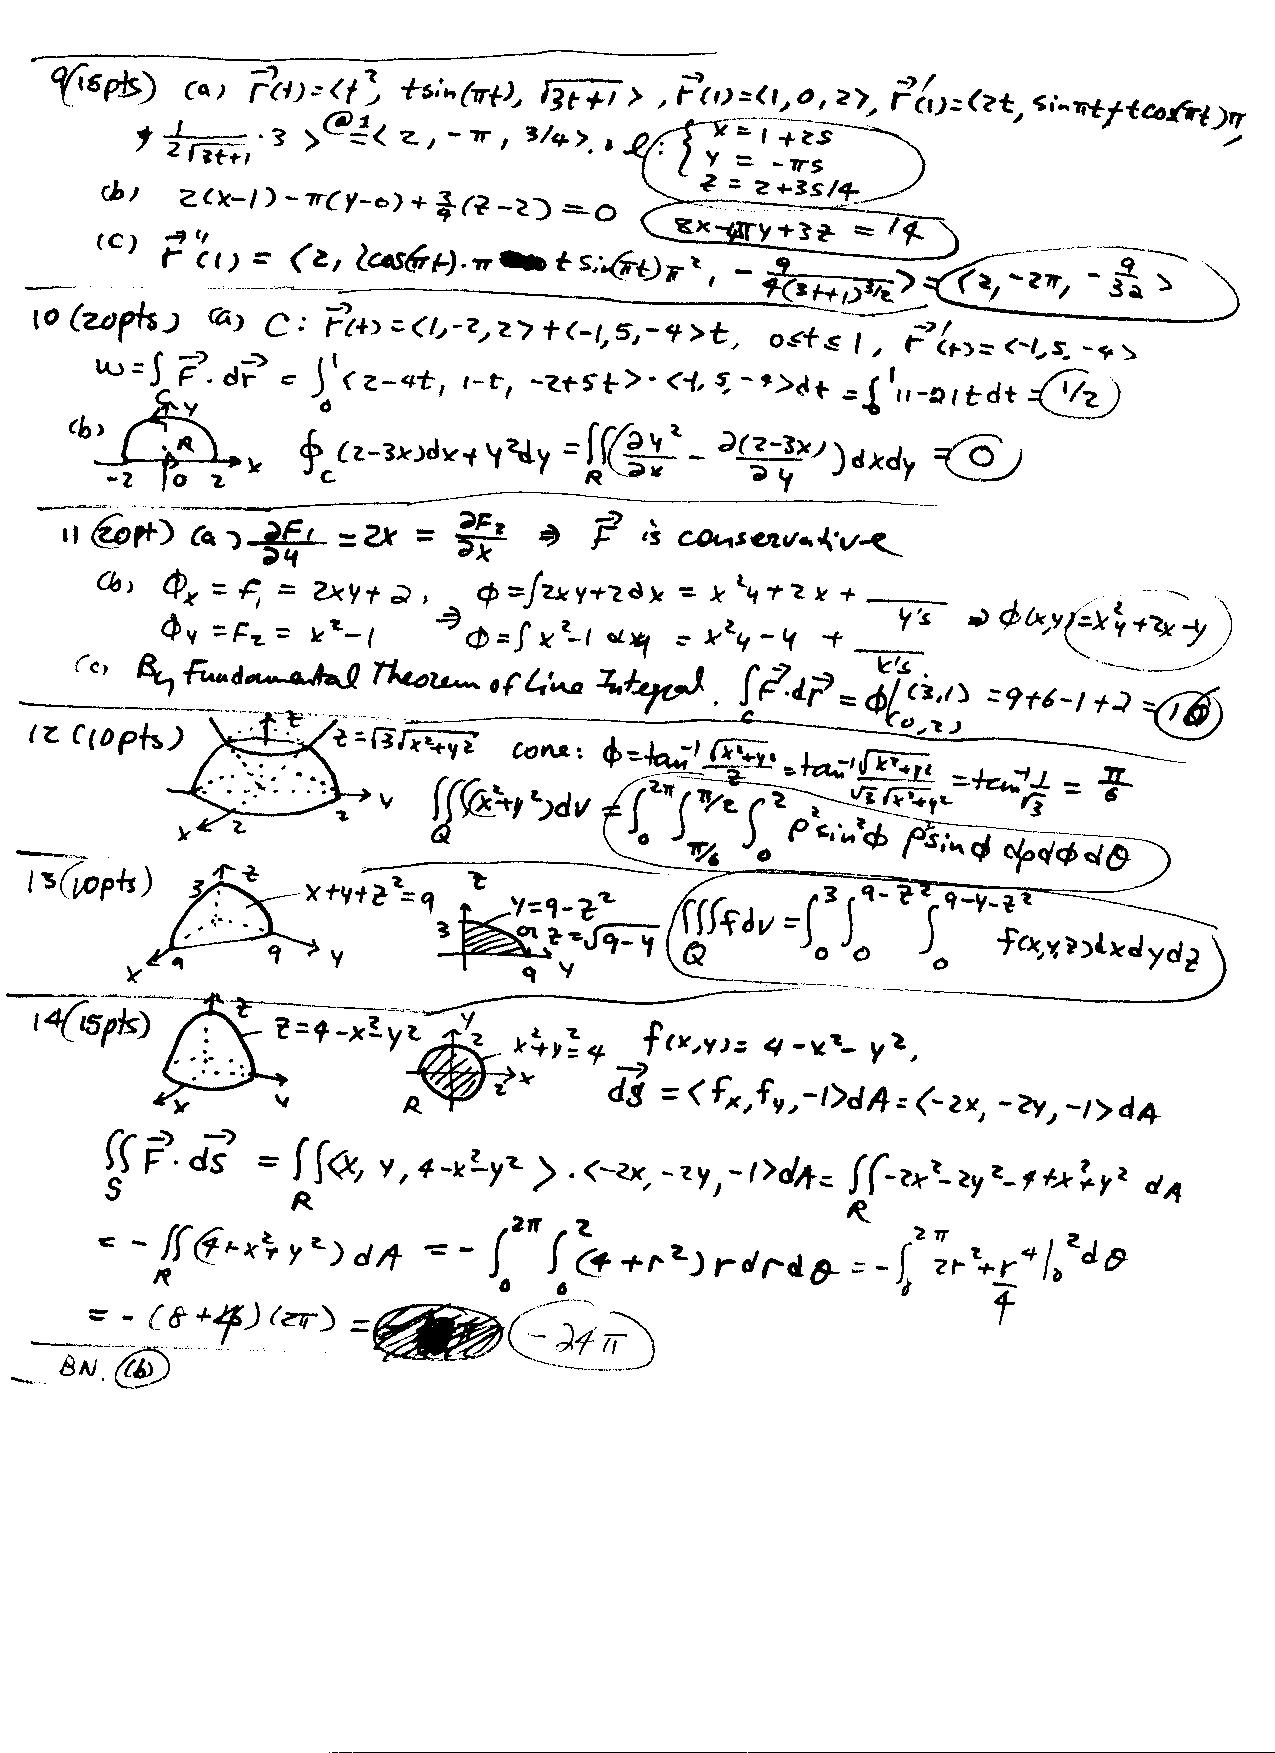 9(15pts) (a) r⃗(t)=<t², tsin(πt), √(3t+1)>, r⃗(1)=<1, 0, 2>, r⃗'(1)=<2t, sinπt+tcos(πt)π,
1/(2√(3t+1))·3> @1= <2, -π, 3/4>. ℓ: { x = 1+2s
y = -πs
z = 2+3s/4
(b) 2(x-1)-π(y-0)+3/4(z-2)=0 8x-4πy+3z = 14
(c) r⃗''(1) = <2, 2cos(πt)·π - t sin(πt)π², -9/(4(3t+1)^(3/2))> = <2, -2π, -9/32>
10(20pts) (a) C: r⃗(t)=<1,-2,2>+<-1,5,-4>t, 0≤t≤1, r⃗'(t)=<-1,5,-4>
W=∫_C F⃗·dr⃗ = ∫₀¹<2-4t, 1-t, -2+5t>·<-1,5,-4>dt = ∫₀¹ 11-21t dt = 1/2
(b) C y R x -2 0 2 ∮_C (2-3x)dx+y²dy = ∬_R (∂y²/∂x - ∂(2-3x)/∂y) dxdy = 0
11(20pt) (a) ∂F₁/∂y = 2x = ∂F₂/∂x ⇒ F⃗ is conservative
(b) ϕ_x = F₁ = 2xy+2, ϕ=∫2xy+2dx = x²y+2x+ ___ y's ⇒ ϕ(x,y)=x²y+2x-y
ϕ_y = F₂ = x²-1 ⇒ ϕ=∫x²-1 dy = x²y-y + ___ x's
(c) By Fundamental Theorem of Line Integral. ∫_C F⃗·dr⃗ = ϕ|(3,1) (0,2) = 9+6-1+2 = 16
12(10pts) z z=√3√(x²+y²) cone: ϕ=tan⁻¹ √(x²+y²)/z = tan⁻¹ √(x²+y²)/(√3√(x²+y²)) = tan⁻¹ 1/√3 = π/6
x 2 2 y ∭_Q (x²+y²)dv = ∫₀^2π ∫_π/6^π/2 ∫₀² ρ²sin²ϕ ρ²sinϕ dρdϕdθ
13(10pts) 3 z x+y+z²=9 z y=9-z²
x 9 9 y 3 or z=√(9-y) 9 y ∭_Q fdv = ∫₀³ ∫₀^(9-z²) ∫₀^(9-y-z²) f(x,y,z)dxdydz
14(15pts) z z=4-x²-y² y 2 x²+y²=4 f(x,y)= 4-x²-y²,
x y R 2 x ds⃗ = <f_x, f_y, -1>dA = <-2x, -2y, -1>dA
∬_S F⃗·ds⃗ = ∬_R <x, y, 4-x²-y²>·<-2x, -2y, -1>dA = ∬_R -2x²-2y²-4+x²+y² dA
= -∬_R (4+x²+y²)dA = -∫₀^2π ∫₀² (4+r²)rdrdθ = -∫₀^2π 2r²+r⁴/4|₀² dθ
= -(8+4)(2π) = -24π
BN. (b)